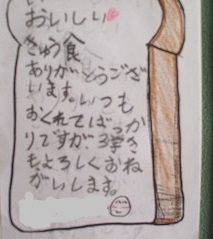 おいしい
きゅう食
ありがとうござ
います。いつも
おくれてばっか
りですが、3学き
もよろしくおね
がいします。